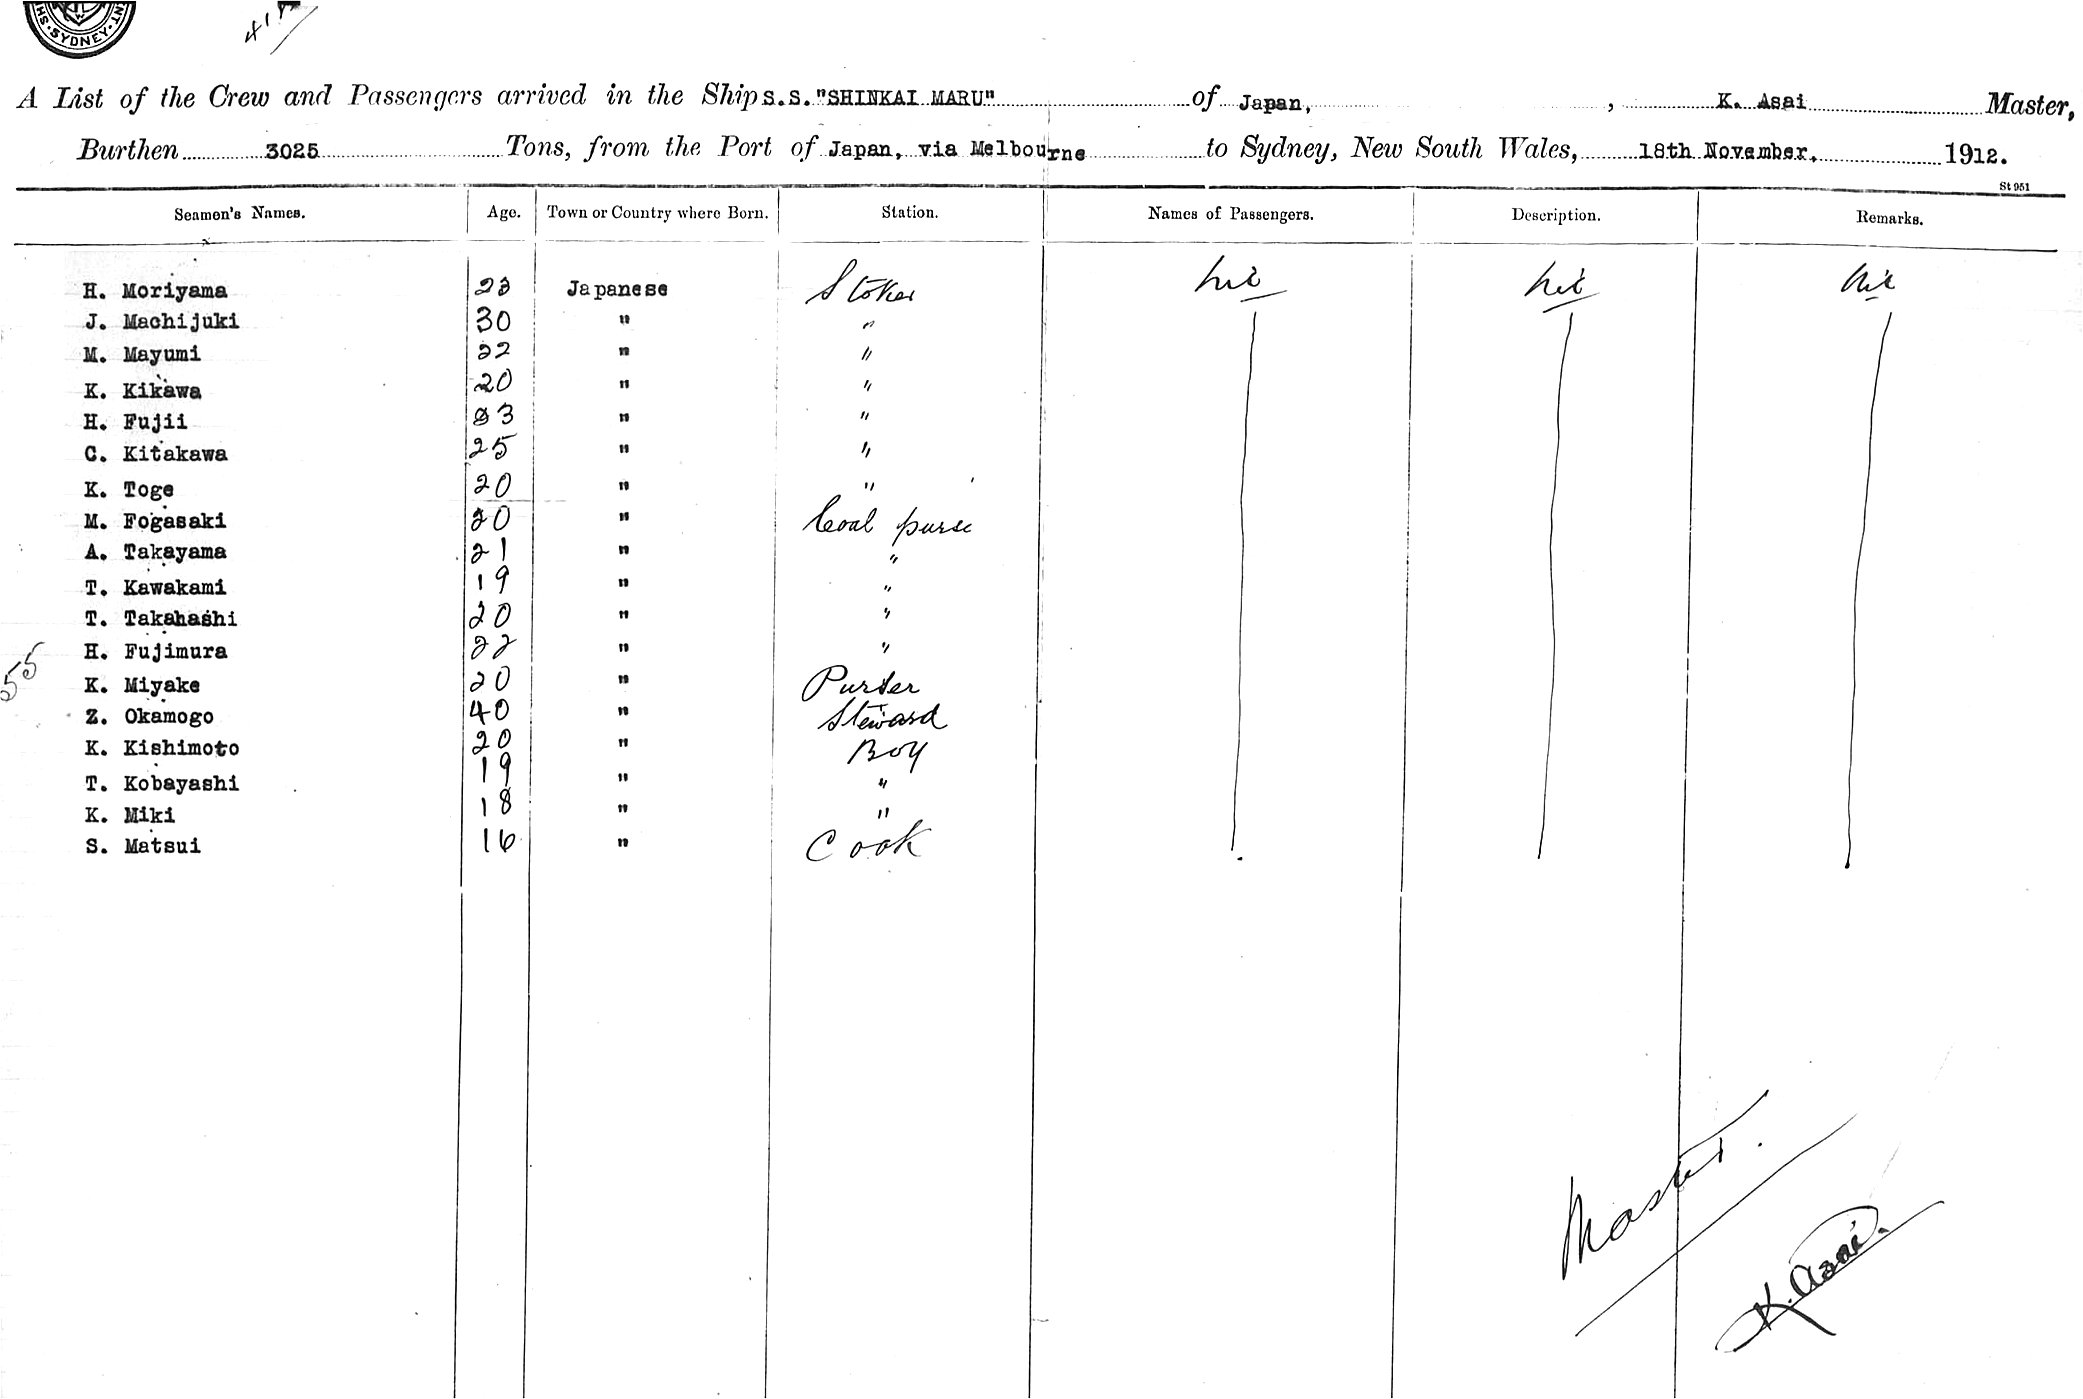 SYDNEY
A List of the Crew and Passengers arrived in the Ship S.S. "SHINKAI MARU" of Japan, , K. Asai Master,
Burthen 3025 Tons, from the Port of Japan, via Melbourne to Sydney, New South Wales, 18th November, 1912.
St 951
Seamen's Names. Age. Town or Country where Born. Station. Names of Passengers. Description. Remarks.
H. Moriyama 23 Japanese Stoker nil nil nil
J. Machijuki 30 " "
M. Mayumi 22 " "
K. Kikawa 20 " "
H. Fujii 23 " "
C. Kitakawa 25 " "
K. Toge 20 " "
M. Fogasaki 20 " Coal purse
A. Takayama 21 " "
T. Kawakami 19 " "
T. Takahashi 20 " "
H. Fujimura 22 " "
55
K. Miyake 20 " Purser
Z. Okamogo 40 " Steward
K. Kishimoto 20 " Boy
T. Kobayashi 19 " "
K. Miki 18 " "
S. Matsui 16 " Cook
Master.
K. Asai.